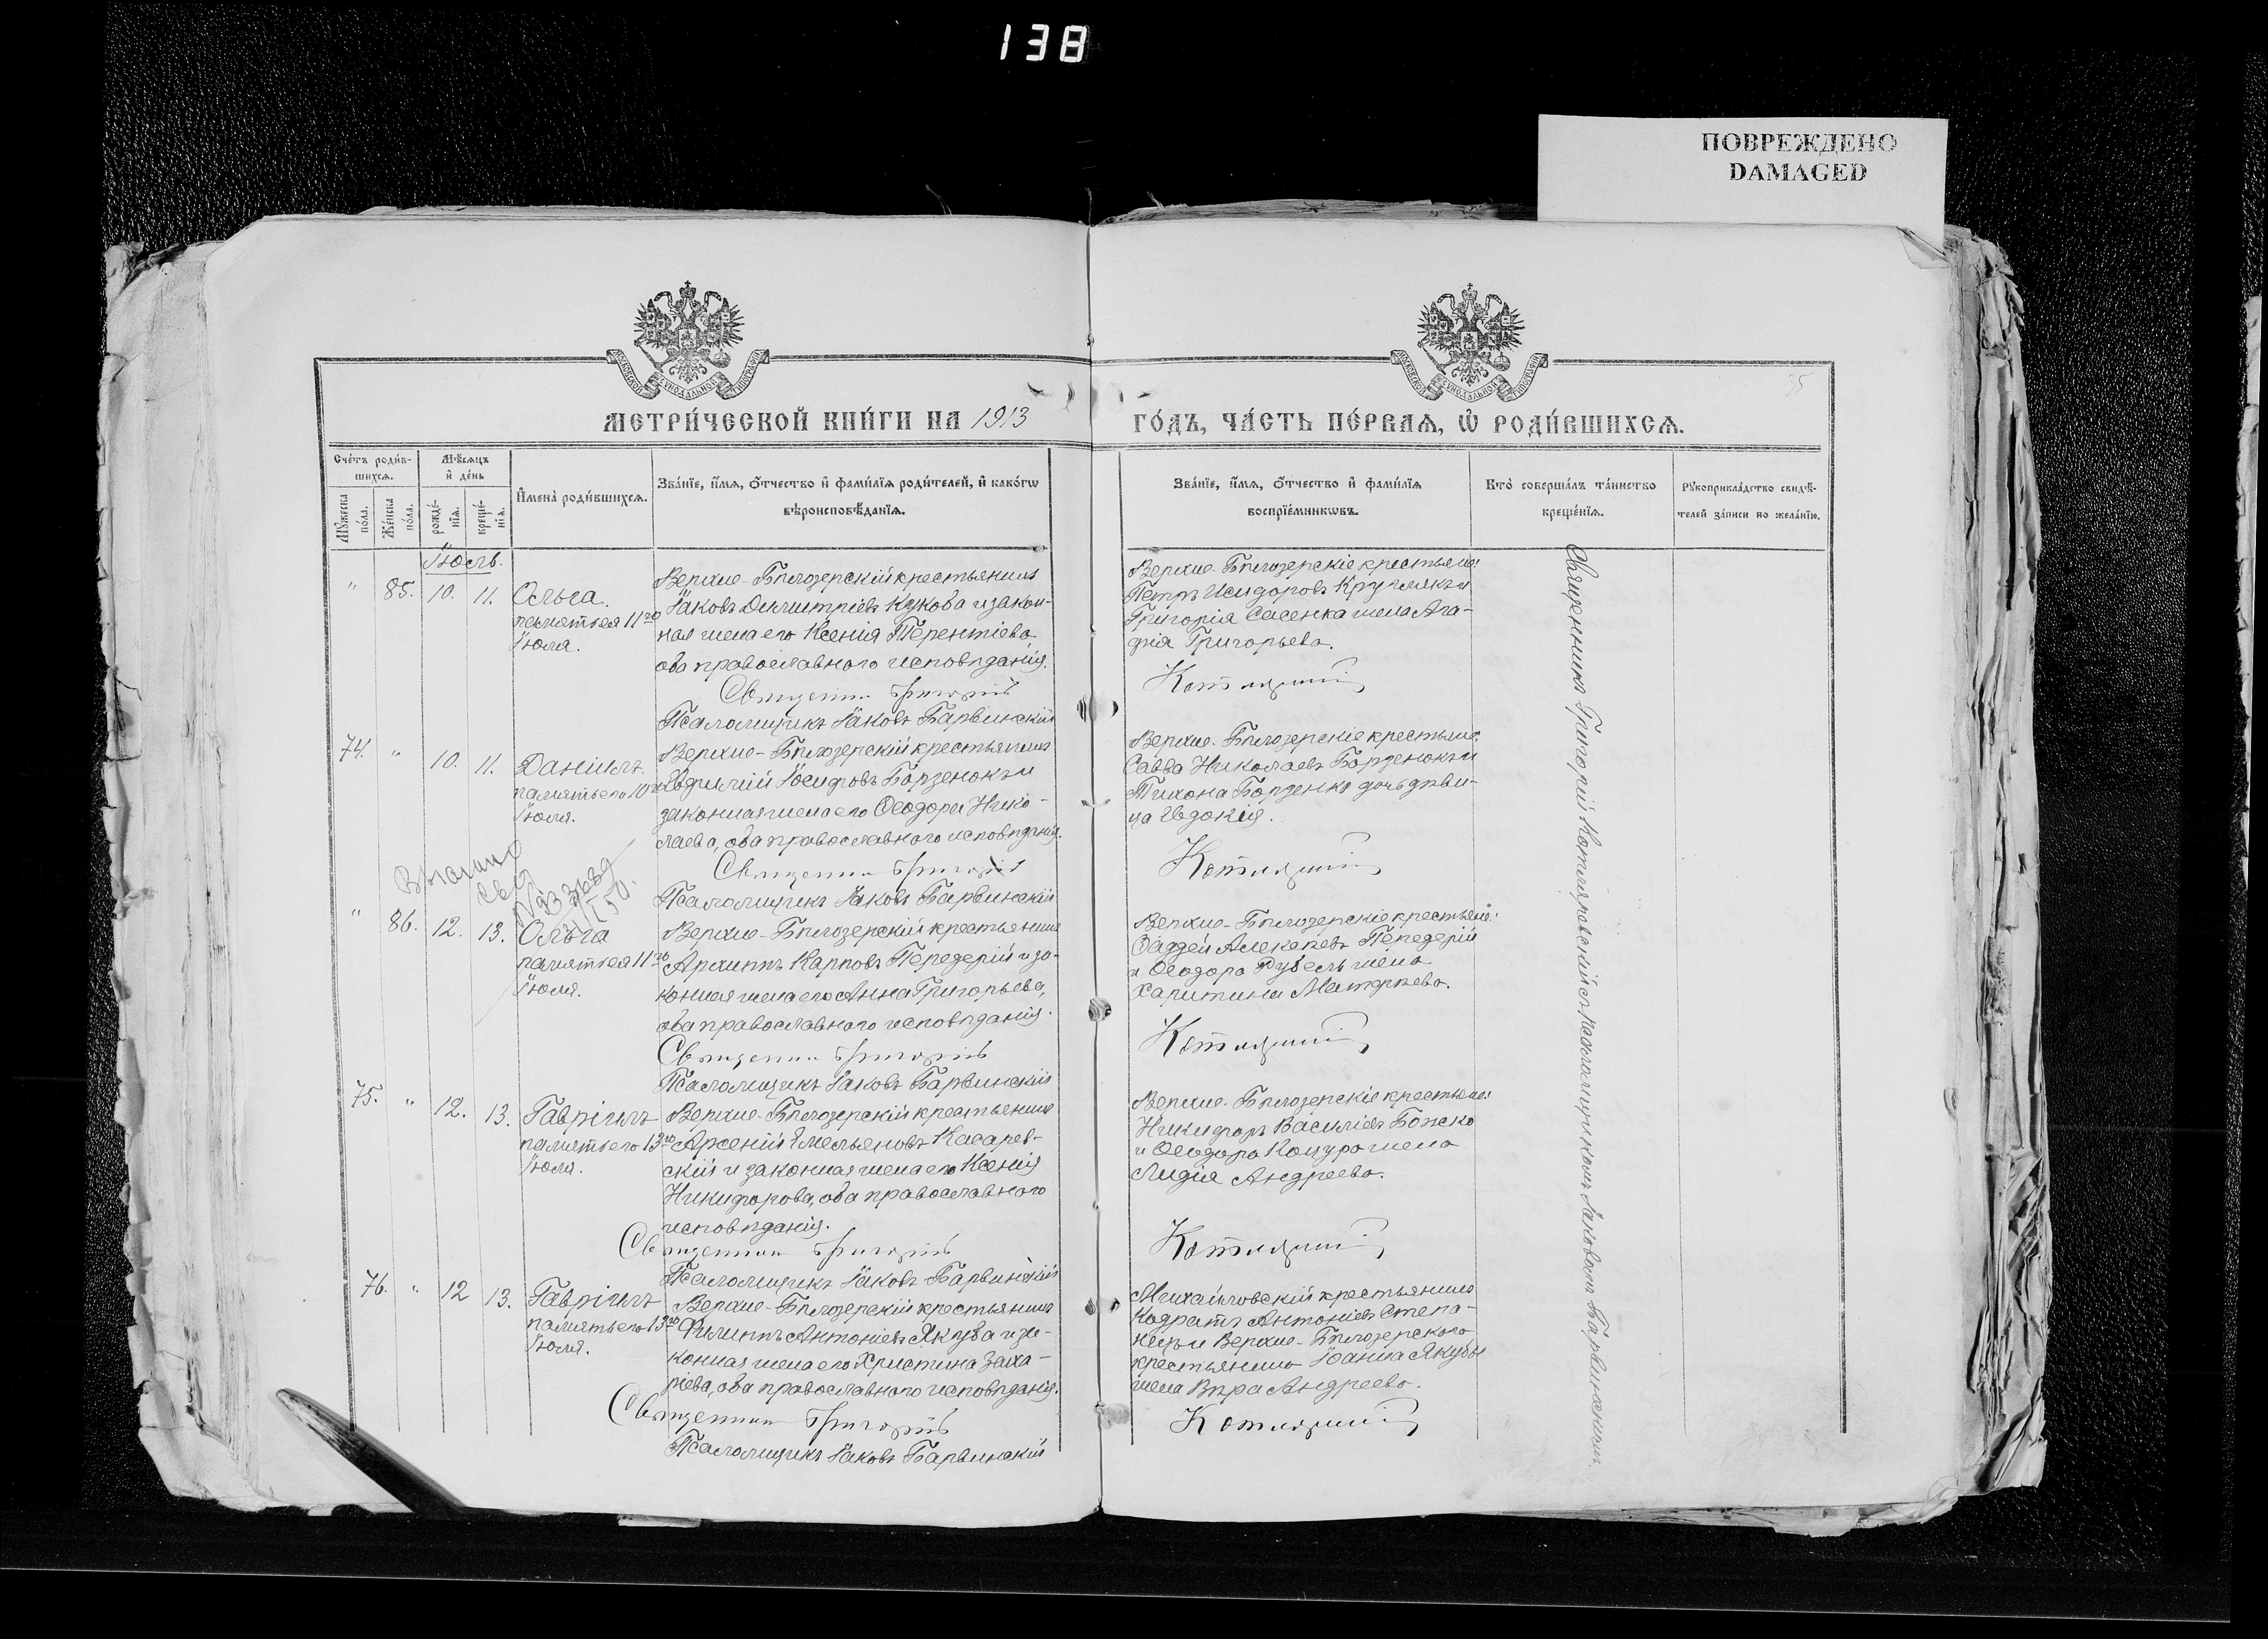 138
ПОВРЕЖДЕНО
DAMAGED
МОСКОВСКОЙ СѴНОДАЛЬНОЙ ТИПОГРАФІИ
МОСКОВСКОЙ СѴНОДАЛЬНОЙ ТИПОГРАФІИ
МЕТРИ́ЧЕСКОЙ КНИ́ГИ НА 1913
ГО́ДЪ, ЧА́СТЬ ПЕ́РВАѦ, Ѡ҆ РОДИ́ВШИХСѦ.
Сче́тъ роди́в-
шихсѧ.
Мꙋ́жеска по́ла.
Же́нска по́ла.
Мѣ́сѧцъ
и҆ де́нь
рожде́-
нїѧ.
креще́-
нїѧ.
И҆мена̀ роди́вшихсѧ.
Зва́нїе, и҆́мѧ, ѻ҆́тчество и҆ фами́лїѧ роди́телей, и҆ како́гѡ
вѣроисповѣ́данїѧ.
Зва́нїе, и҆́мѧ, ѻ҆́тчество и҆ фами́лїѧ
воспрїе́мникѡвъ.
Кто̀ соверша́лъ та́инство
креще́нїѧ.
Рꙋкоприкла́дство свидѣ́-
телей за́писи по жела́нїю.
Іюль.
" 85. 10. 11. Ольга.
память ея 11го
Іюля.
Верхне-Бѣлозерскій крестьянинъ
Іаковъ Димитріевъ Жукова и закон-
ная жена его Ксенія Терентіева
оба православнаго исповѣданія.
Священникъ Григорій
Псаломщикъ Іаковъ Барвинскій
Верхне-Бѣлозерскіе крестьяне:
Петръ Исидоровъ Круглякъ и
Григорія Сасенка жена Ага-
фія Григорьева.
Котляревскій
74. " 10. 11. Даніилъ.
память его 10го
Іюля.
Верхне-Бѣлозерскій крестьянинъ
Евфимій Іосифовъ Борзенокъ и
законная жена его Ѳеодора Нико-
лаева, оба православнаго исповѣданія.
Священникъ Григорій
Псаломщикъ Іаковъ Барвинскій
Верхне-Бѣлозерскіе крестьяне:
Савва Николаевъ Борзенокъ и
Тихона Борзенко дочь дѣви-
ца Евдокія.
Котляревскій
" 86. 12. 13. Ольга
память ея 11го
Іюля.
Верхне-Бѣлозерскій крестьянинъ
Архиппъ Карповъ Передерій и за-
конная жена его Анна Григорьева,
оба православнаго исповѣданія.
Священникъ Григорій
Псаломщикъ Іаковъ Барвинскій
Верхне-Бѣлозерскіе крестьяне:
Ѳаддей Алексѣевъ Передерій
и Ѳеодора Рубель жена
Харитина Матѳеева.
Котляревскій
75. " 12. 13. Гавріилъ
память его 13го
Іюля.
Верхне-Бѣлозерскій крестьянинъ
Арсеній Емельяновъ Касарев-
скій и законная жена его Ксенія
Никифорова, оба православнаго
исповѣданія.
Священникъ Григорій
Псаломщикъ Іаковъ Барвинскій
Верхне-Бѣлозерскіе крестьяне:
Никифоръ Василіевъ Божко
и Ѳеодора Коцура жена
Лидія Андреева.
Котляревскій
76. " 12 13. Гавріилъ
память его 13го
Іюля.
Верхне-Бѣлозерскій крестьянинъ
Филиппъ Антоніевъ Якуба и за-
конная жена его Христина Заха-
ріева, оба православнаго исповѣданія.
Священникъ Григорій
Псаломщикъ Іаковъ Барвинскій
Михайловскій крестьянинъ
Кодратъ Антоніевъ
и Верхне-Бѣлозерскаго
крестьянина Іоанна Якубы
жена Вѣра Андреева.
Котляревскій
Священникъ Григорій Котляревскій съ псаломщикомъ Іаковомъ Барвинскимъ.